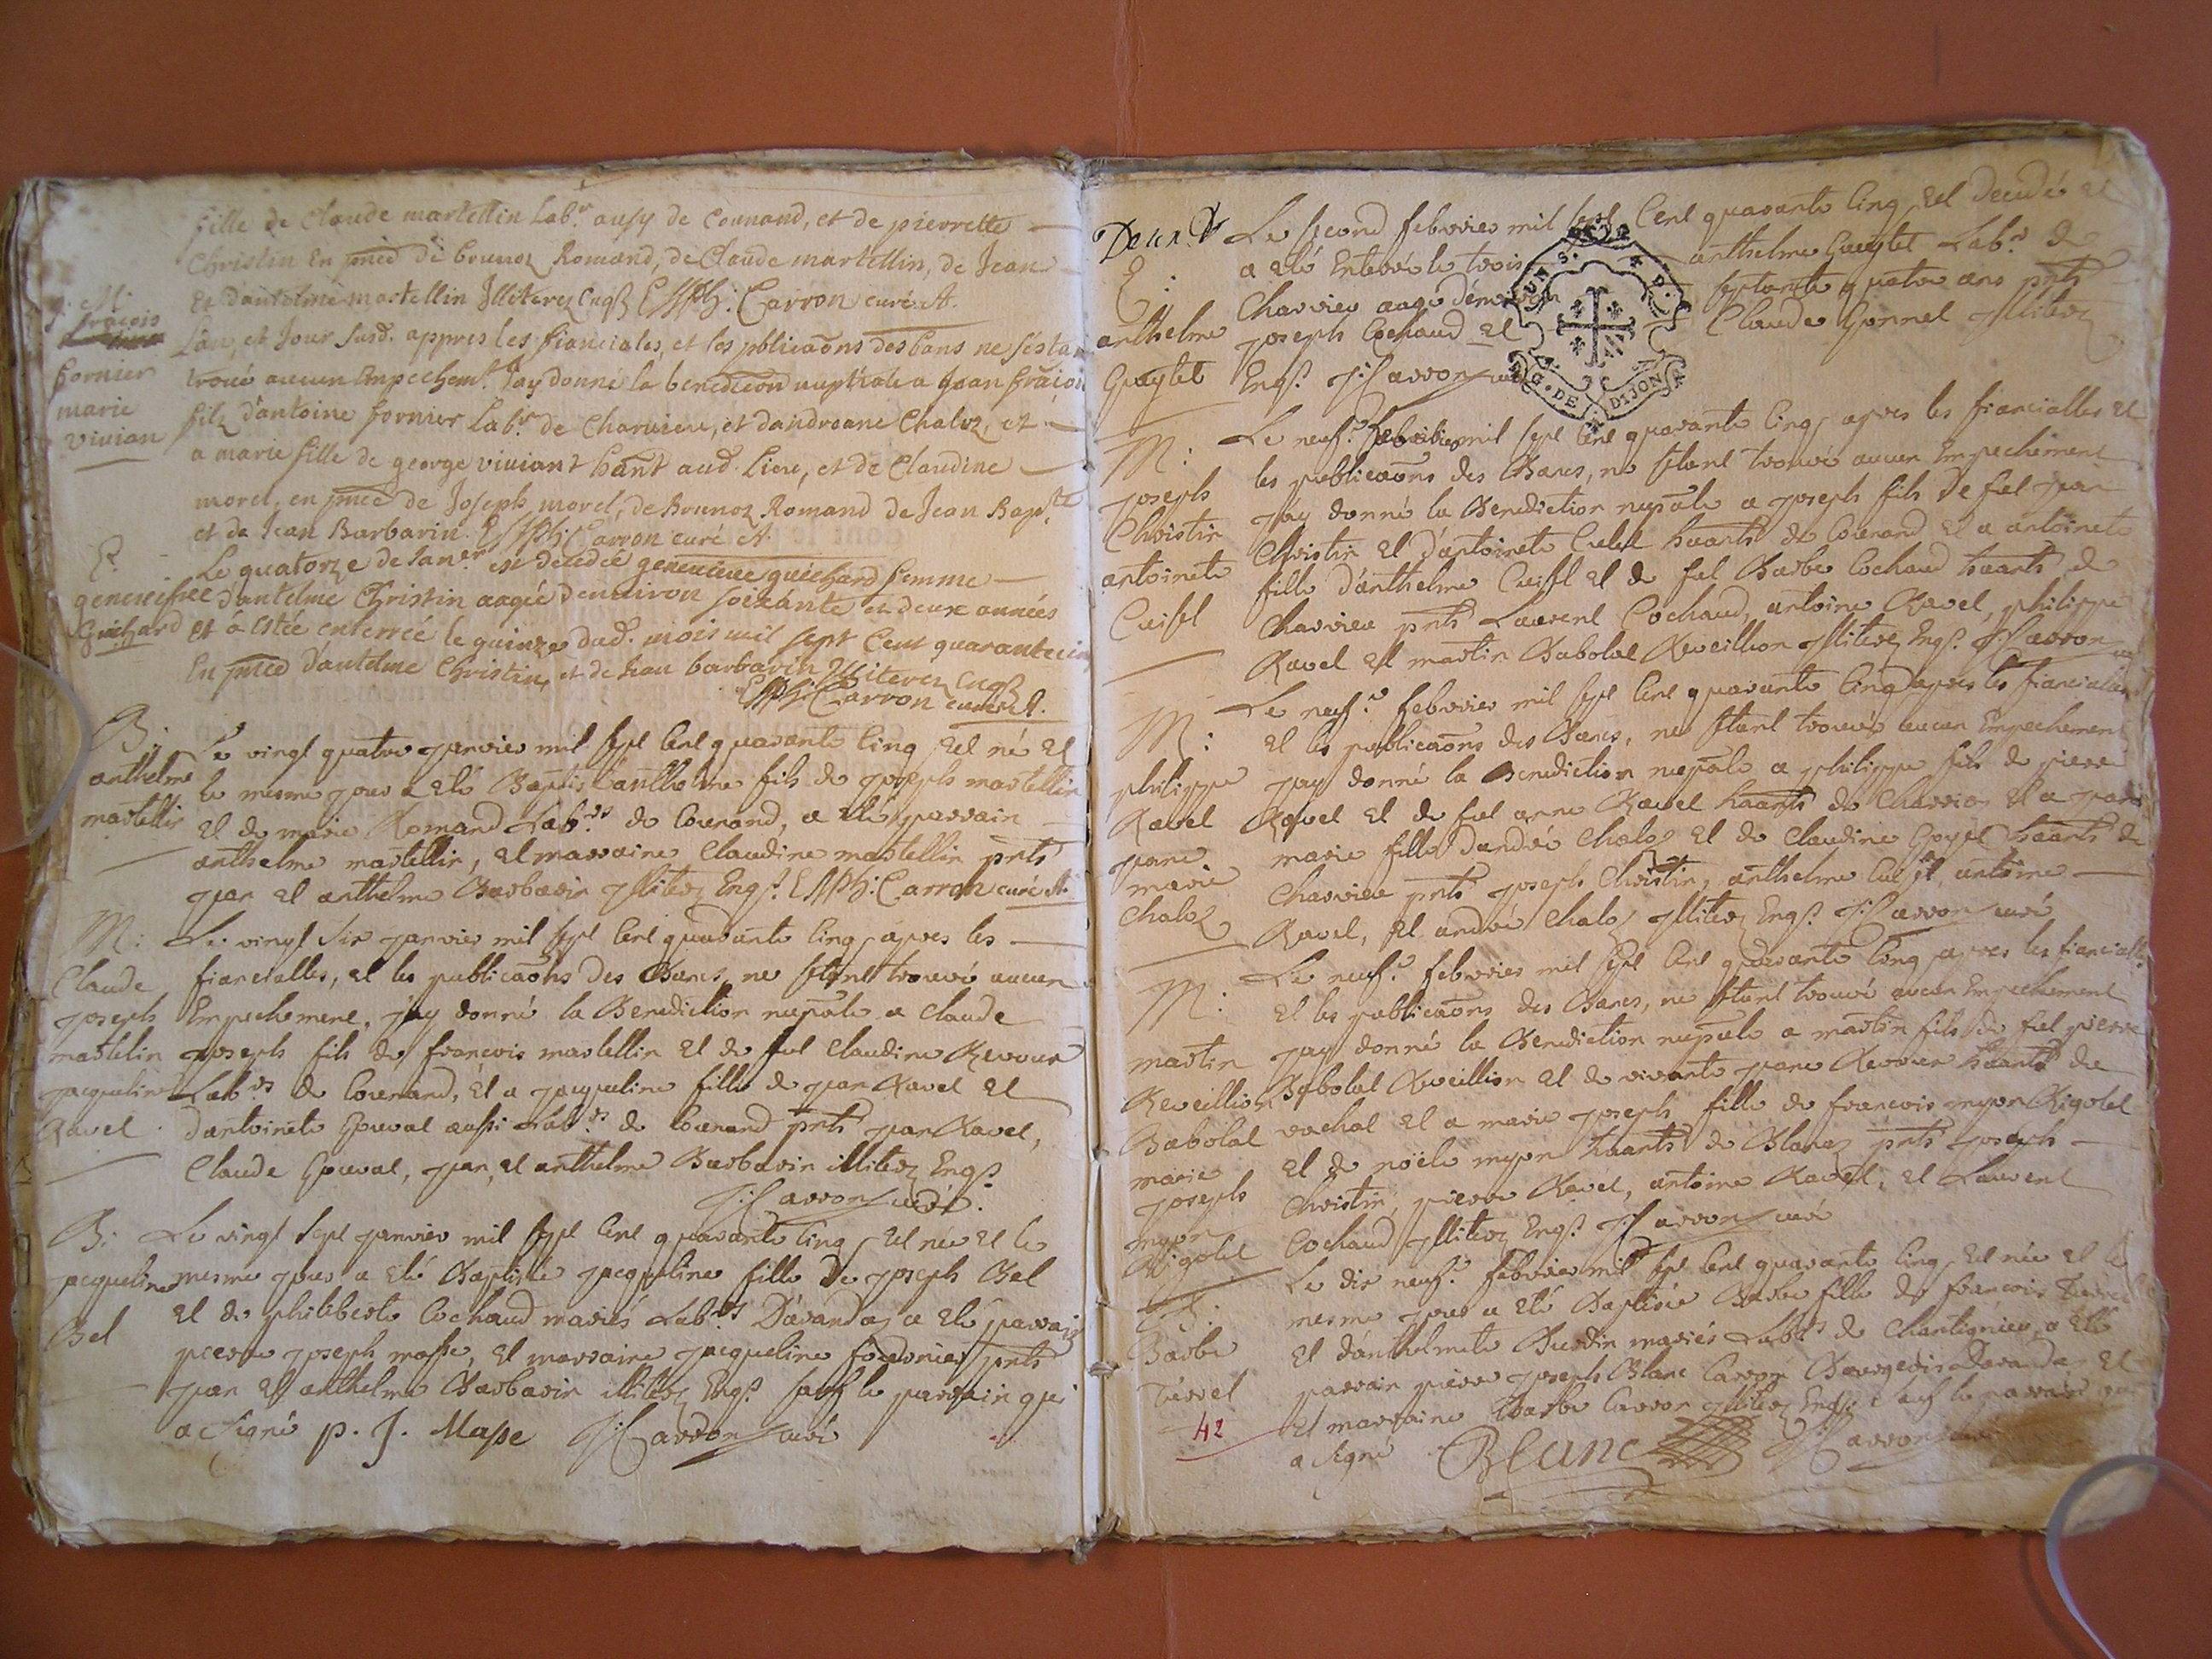 fille de Claude martellin Lab.r aussy de Counand, et de pierrette
Christin En pnce de brunoz Romand, de Claude martellin, de Jean
Et d'antelme martellin Illiterez Enqs Carron curé A.
M:
françois
fornier
marie
vivian
Lan, et Jour susd. appres les fiancailes, et les pblicaõns des bans ne sesta
troué aucun Empechemt. Jay donné la benediceon nuptiale a Jean frãcoi
filz d'antoine fornier Labr. de Charvieu, et dandreane Chaloz, et
a marie fille de george viviant hant aud. Lieu, et de Claudine
morel, en pnce de Joseph morel, de Brunoz Romand de Jean Bapte
et de Jean Barbarin. Carron curé A.
E
geneviefve
Guichard
Le quatorze de Janer est decedée genevieue guichard femme
d'antelme Christin aagée denuiron soixante et deux années
et a estée enterrée le quinze dud. mois mil sept Cent quarante cin
En pnce d'antelme Christin, et de Jean barbarin Illiterez Enqs
Carron curé A.
B:
anthelme
martellin
Le vingt quatre janvier mil sept Cent quarante Cinq Est né Et
le mesme jour a Eté Baptisé anthelme fils de joseph martellin
Et de marie Romand Labrs de Counand, a Eté parrain
anthelme martellin, Et marraine Claudine martellin pnts
jean Et anthelme Barbarin jlliterz Enqs. Carron curé A.
M:
Claude
joseph
martelin
jacqueline
Ravel
Le vingt six janvier mil sept Cent quarante Cinq apres les
fiancialles, Et les publicaõns des Bancs, ne stant trouvé aucun
Empechement, jay donné la Benediction nupale a Claude
joseph fils de françois martellin Et de fut Claudine Revour
Labrs de Counand, Et a jacqueline fille de jean Ravel Et
d'antoinete Gouval aussi Labrs de Counand pnts jean Ravel,
Claude Gouval, jean, Et anthelme Barbarin illiterz Enqs
Carron curé.
B:
jacqueline
Bel
Le vingt sept janvier mil sept Cent quarante Cinq Est née Et le
mesme jour a Eté Baptisée jacqueline fille de joseph Bel
Et de philiberte Cochaud mariés Labrs D'avandaz a Eté parrain
pierre joseph masse, Et marraine jacqueline pnts
jean Et anthelme Barbarin illiterz Enqs. sauf le parrain qui
a signé p. J. Masse Carron curé
E:
anthelme
Guaytet
Le second febvrier mil sept Cent quarante Cinq Est Decedé Et
a Eté Enterré le trois anthelme Guaytet Labr de
Charvieu aagé d'environ septante quatre ans pnts
joseph Cochaud Et Claude Gonnel jlliterz
Enqs. Carron curé
M:
joseph
Christin
antoinete
Le neuf.e febvrier mil sept Cent quarante Cinq apres les fiancialles Et
les publicaõns des Bancs, ne stant trouvé aucun Empechement
jay donné la Benediction nupale a joseph fils de fut jean
Christin Et d'antoinete haants de Counand Et a antoinete
fille d'anthelme Et de fut Barbe Cochaud haants de
Charvieu pnts Laurent Cochaud, antoine Ravel, philippe
Ravel Et martin Babolat Reveillion jlliterz Enqs. Carron
M:
philippe
Ravel
jane
marie
Chaloz
Le neuf.e febvrier mil sept Cent quarante Cinq apres les fiancialles
Et les publicaõns des Bancs, ne stant trouvé aucun Empechement
jay donné la Benediction nupale a philippe fils de pierre
Ravel Et de fut anne Ravel haants de Charvieu Et a jane
marie fille d'andré Chaloz Et de Claudine Goyet haants de
Charvieu pnts joseph Christin, anthelme antoine
Ravel, Et andré Chaloz jlliterz Enqs. Carron curé
M:
martin
Reveillion
Babolat
marie
joseph
myon
Rigolet
Le neuf.e febvrier mil sept Cent quarante Cinq apres les fiancialles
Et les publicaõns des Bancs, ne stant trouvé aucun Empechement
jay donné la Benediction nupale a martin fils de fut pierre
Babolat Reveillion Et de vivante jane Revour haants de
rochat Et a marie joseph fille de francois myon Rigolet
Et de noële myon haants de Blanaz pnts joseph
Christin, pierre Ravel, antoine Ravel, Et Laurent
Cochaud jlliterz Enqs. Carron curé
B:
Barbe
Tervel
42
Le dix neuf.e febvrier mil sept Cent quarante Cinq Est née Et le
mesme jour a Eté Baptisée Barbe fille de francois
Et d'anthelmete Burdin mariés Labrs de Chantignieu, a Eté
parrain pierre joseph Blanc Carron Bourgeois Davandaz Et
Et marraine Barbe Carron jlliterz Enqs sauf le parrain qui
a signé Blanc Carron
G. DE DIJON